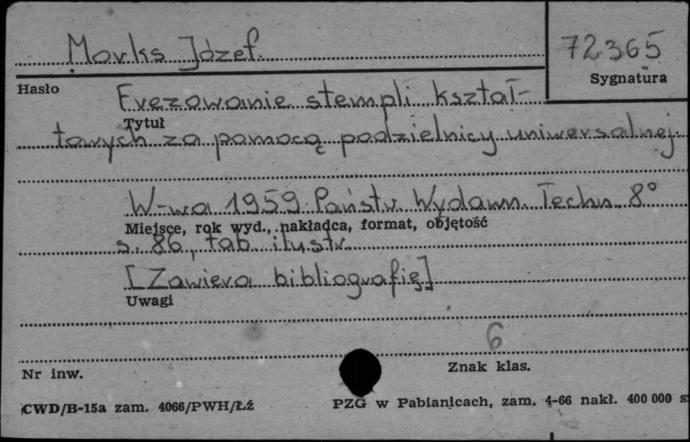 Marks Józef
72365
Sygnatura
Hasło
Frezowanie stempli kształ-
Tytuł
towych za pomocą podzielnicy uniwersalnej.
W-wa 1959 Państw. Wydawn. Techn. 8°
Miejsce, rok wyd., nakładca, format, objętość
s. 86, tab. ilustr.
[Zawiera bibliografię]
Uwagi
6
Nr inw.
Znak klas.
CWD/B-15a zam. 4066/PWH/Łź
PZG w Pabianicach, zam. 4-66 nakł. 400 000 s